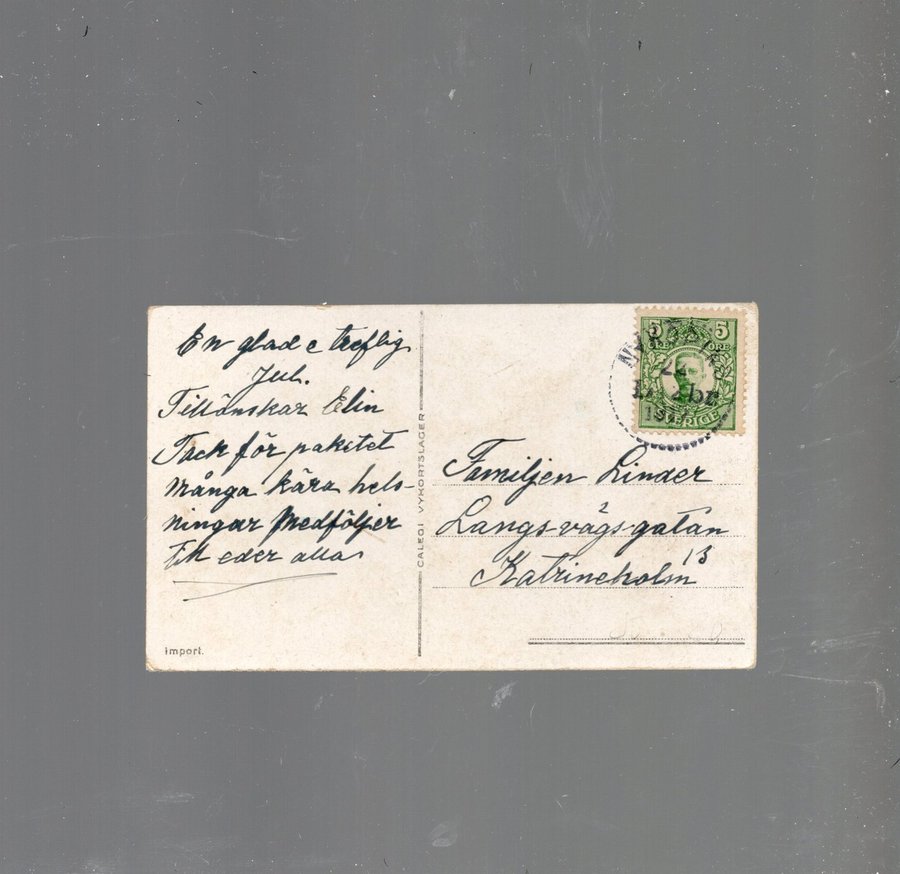 En glad e treflig
Jul.
Tillönskar Elin
Tack för paketet
Många kära hels-
ningar Medföljer
till eder alla
Import.
CALEGI VYKORTSLAGER
5 5
ÖRE
SVERIGE
Familjen Linder
Langs-vägs-gatan
13
Katrineholm